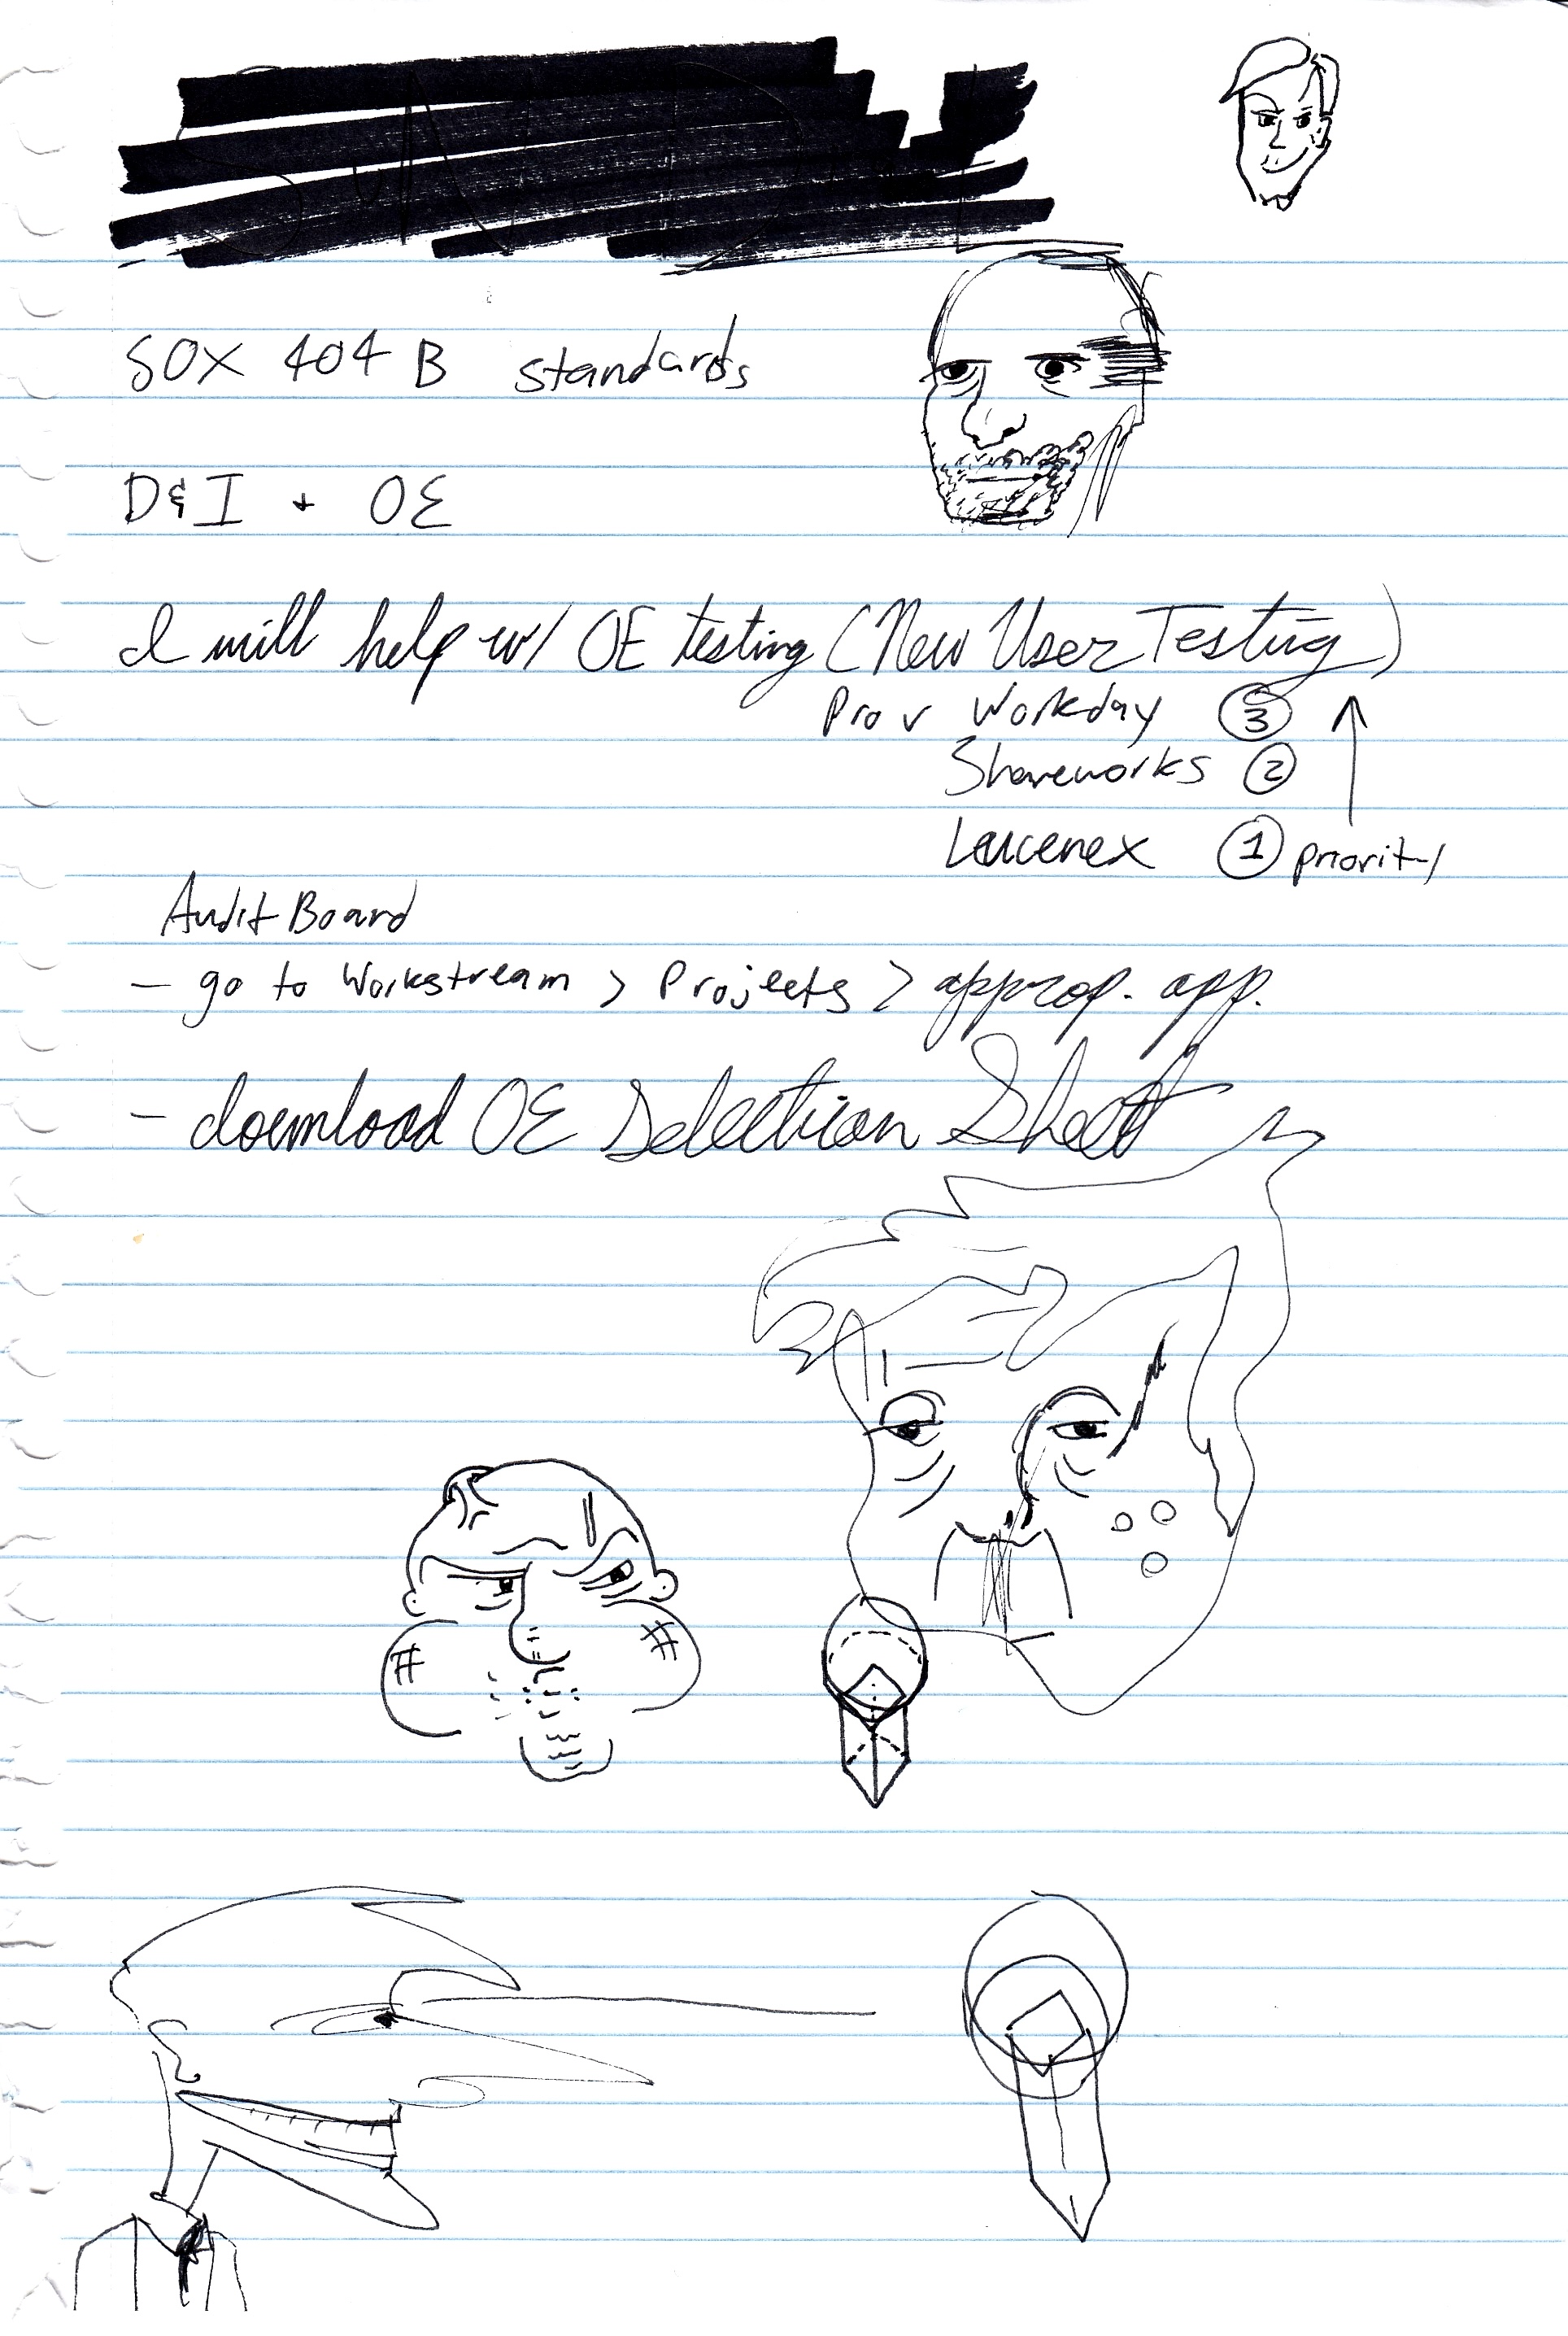 SOX 404 B standards
D&I + OE
I will help w/ OE testing (New User Testing)
Prov Workday ③ ↑
Shareworks ②
Leucenex ① priority
Audit Board
- go to Workstream > Projects > approp. app.
- download OE Selection Sheet